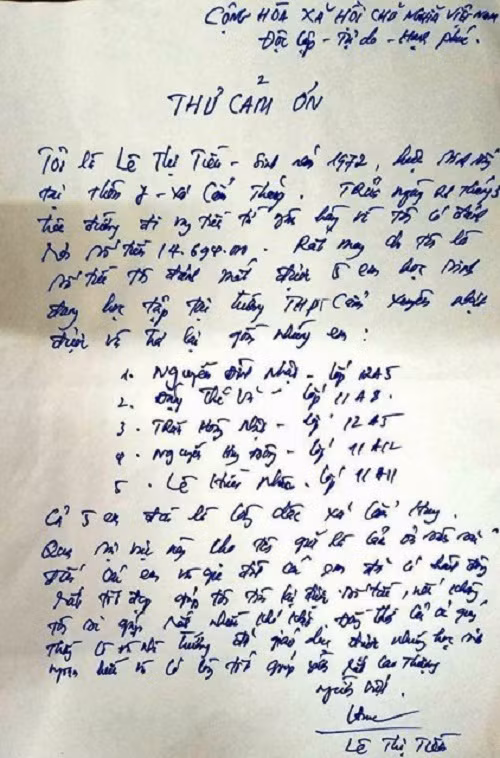 CỘNG HÒA XÃ HỘI CHỦ NGHĨA VIỆT NAM
Độc lập - Tự do - Hạnh phúc.
THƯ CẢM ƠN
Tôi là Lê Thị Tiến - Sinh năm 1972, hiện sinh sống
tại thôn 7 - xã Cẩm Thăng. Trưa ngày 21 tháng 3
trên đường đi từ ngân hàng về tôi có đánh
rơi số tiền 14.694.000. Rất may cho tôi là
số tiền tôi đánh mất được 5 em học sinh
đang học tập tại trường THPT Cẩm Xuyên nhặt
được và trả lại gồm những em:
1. Nguyễn Đình Nhật - lớp 12A5
2. Đặng Thế - lớp 11A8.
3. Trần Hoàng Nhật - lớp 12A5
4. Nguyễn Huy - lớp 11A12
5. Lê lớp 11A11
Cả 5 em đều là xã Cẩm Hưng.
Qua sự việc này cho tôi gửi lời cảm ơn
đến các em và gia đình các em đã có hành động
rất tốt đẹp giúp tôi tìm lại được số tiền, nếu không
tôi sẽ gặp rất nhiều khó khăn. Đồng thời cảm ơn quý
thầy cô và nhà trường đã giáo dục được những học sinh
ngoan hiền và có lòng tốt giúp cao thượng
người
Lê Thị Tiến